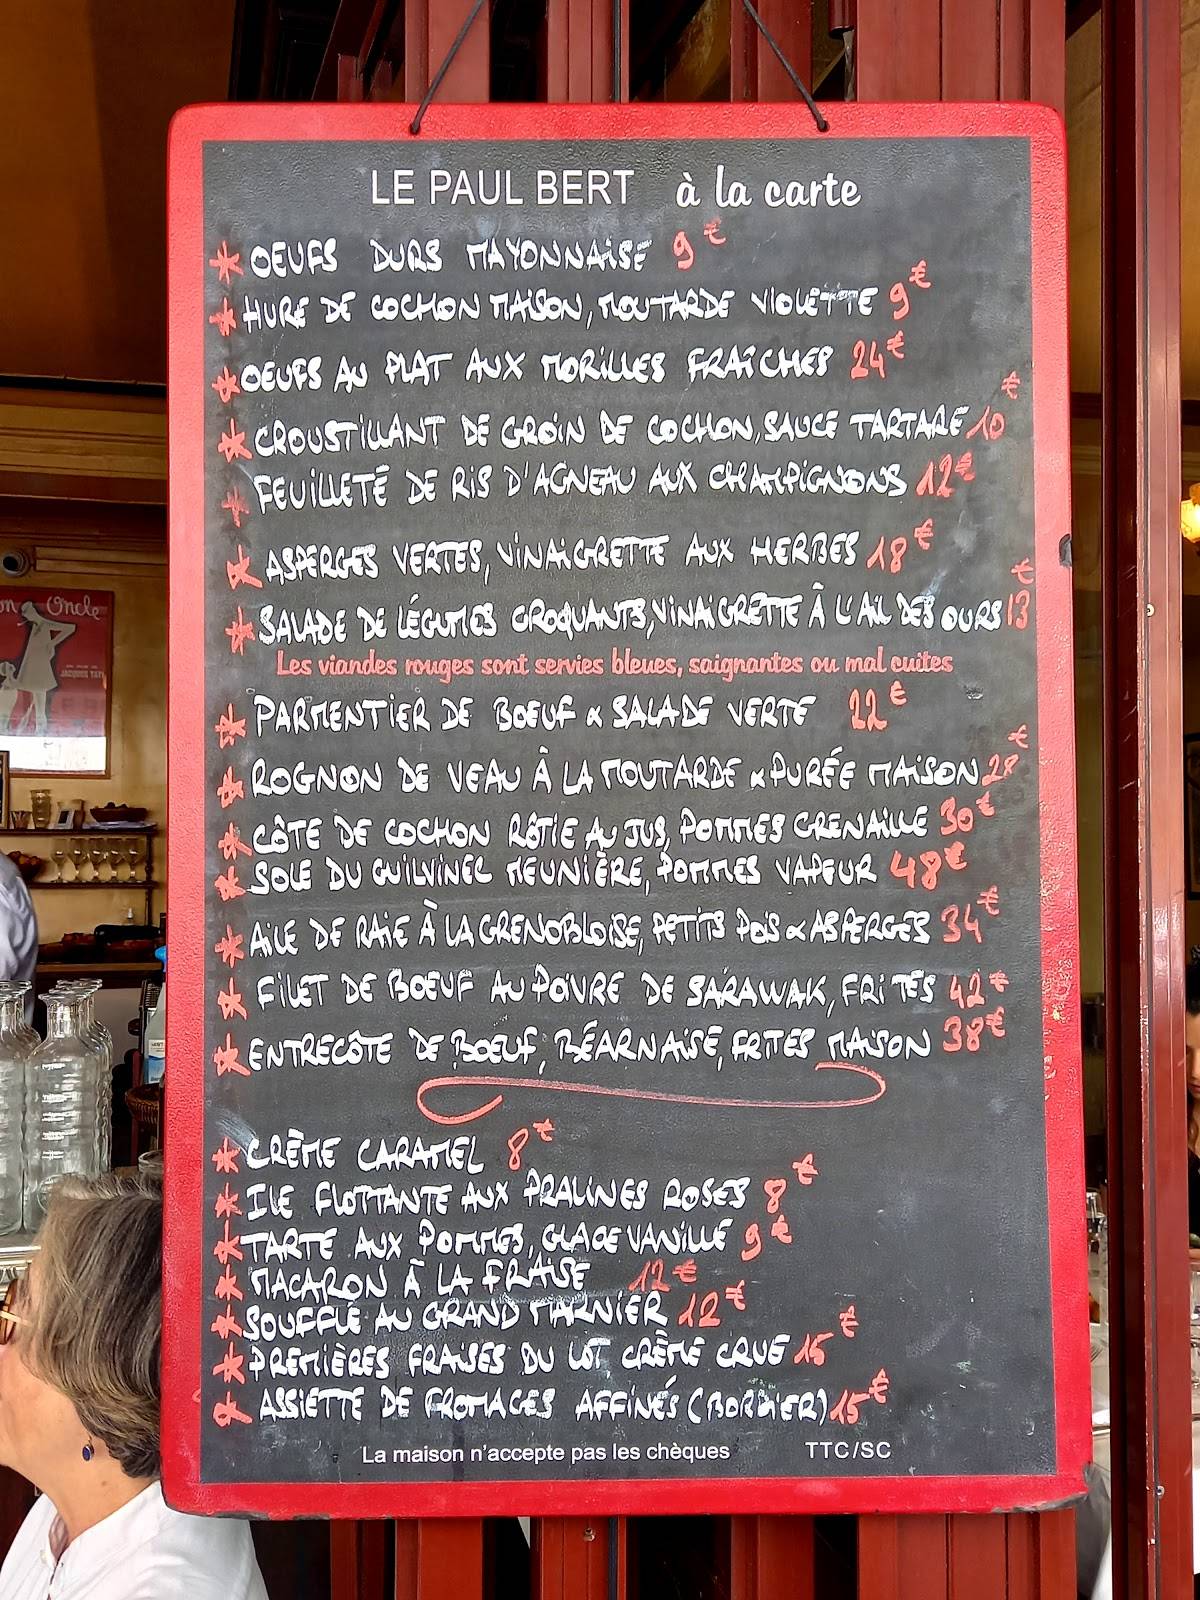 LE PAUL BERT à la carte
* OEUFS DURS MAYONNAISE 9€
* HURE DE COCHON MAISON, MOUTARDE VIOLETTE 9€
* OEUFS AU PLAT AUX MORILLES FRAÎCHES 24€
* CROUSTILLANT DE GROIN DE COCHON, SAUCE TARTARE 10€
* FEUILLETÉ DE RIS D'AGNEAU AUX CHAMPIGNONS 12€
* ASPERGES VERTES, VINAIGRETTE AUX HERBES 18€
* SALADE DE LÉGUMES CROQUANTS, VINAIGRETTE À L'AIL DES OURS 13€
Les viandes rouges sont servies bleues, saignantes ou mal cuites
* PARMENTIER DE BOEUF & SALADE VERTE 22€
* ROGNON DE VEAU À LA MOUTARDE & PURÉE MAISON 28€
* CÔTE DE COCHON RÔTIE AU JUS, POMMES GRENAILLE 30€
* SOLE DU GUILVINEC MEUNIÈRE, POMMES VAPEUR 48€
* AILE DE RAIE À LA GRENOBLOISE, PETITS POIS & ASPERGES 34€
* FILET DE BOEUF AU POIVRE DE SARAWAK, FRITES 42€
* ENTRECÔTE DE BOEUF, BÉARNAISE, FRITES MAISON 38€
* CRÈME CARAMEL 8€
* ILE FLOTTANTE AUX PRALINES ROSES 8€
* TARTE AUX POMMES, GLACE VANILLE 9€
* MACARON À LA FRAISE 12€
* SOUFFLÉ AU GRAND MARNIER 12€
* PREMIÈRES FRAISES DU LOT CRÈME CRUE 15€
* ASSIETTE DE FROMAGES AFFINÉS (BORDIER) 15€
La maison n'accepte pas les chèques TTC/SC
Oncle